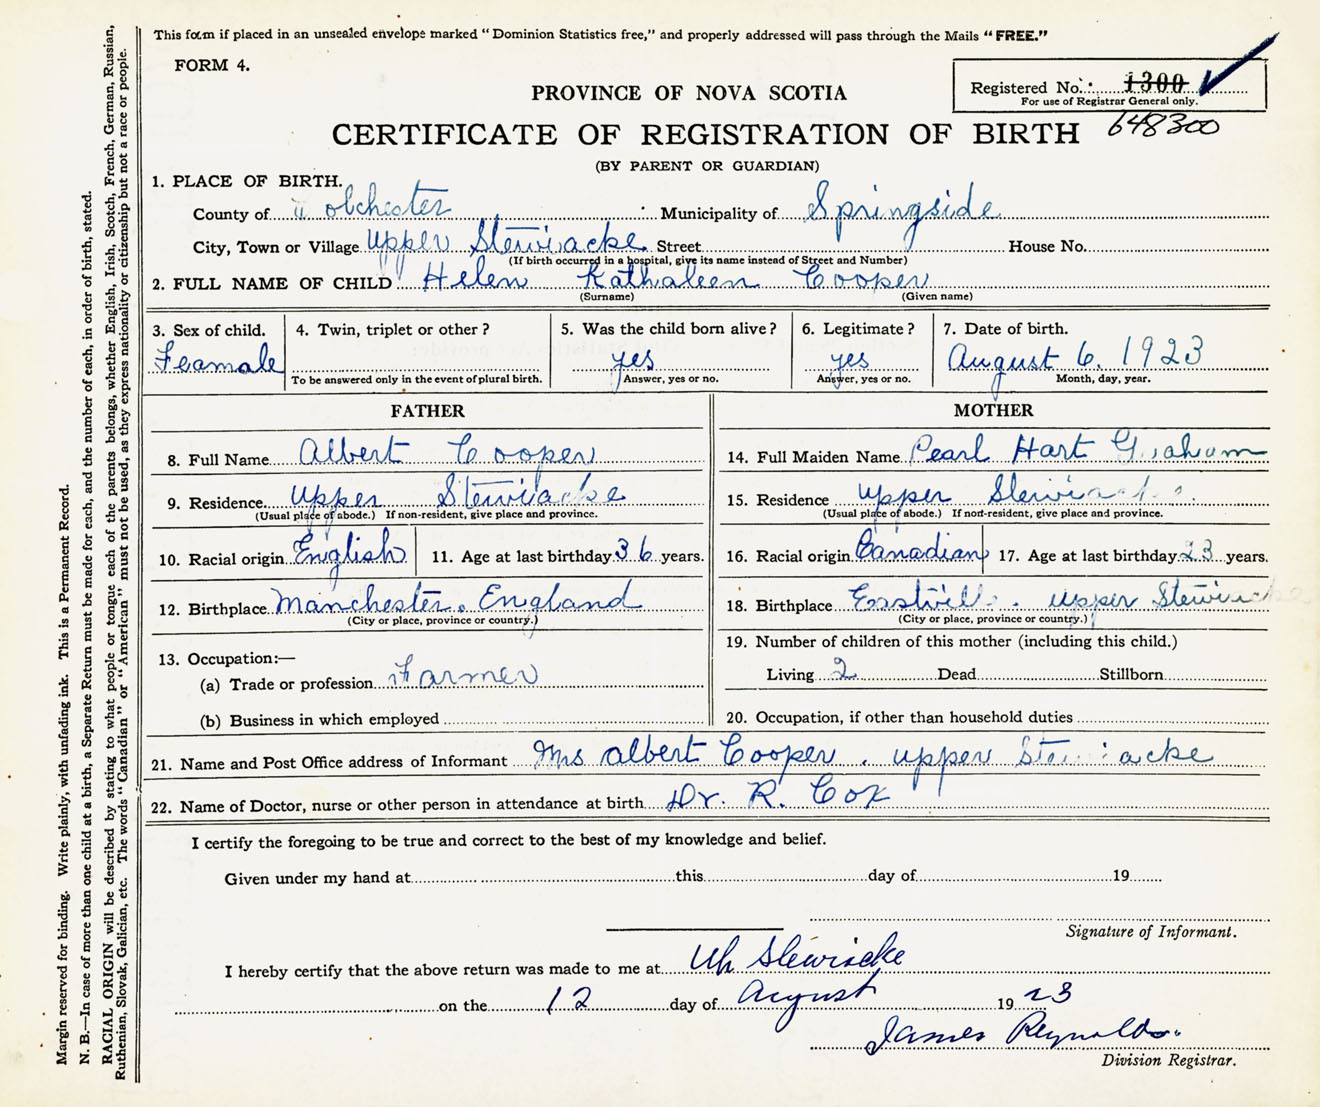 This form if placed in an unsealed envelope marked "Dominion Statistics free," and properly addressed will pass through the Mails "FREE."
FORM 4.
Registered No. 1300
For use of Registrar General only.
648300
PROVINCE OF NOVA SCOTIA
CERTIFICATE OF REGISTRATION OF BIRTH
(BY PARENT OR GUARDIAN)
1. PLACE OF BIRTH.
County of Colchester Municipality of Springside
City, Town or Village Upper Stewiacke Street House No.
(If birth occurred in a hospital, give its name instead of Street and Number)
2. FULL NAME OF CHILD Helen Kathaleen Cooper
(Surname) (Given name)
3. Sex of child. 4. Twin, triplet or other? 5. Was the child born alive? 6. Legitimate? 7. Date of birth.
Feamale yes yes August 6. 1923
To be answered only in the event of plural birth. Answer, yes or no. Answer, yes or no. Month, day, year.
FATHER
8. Full Name Albert Cooper
9. Residence Upper Stewiacke
(Usual place of abode.) If non-resident, give place and province.
10. Racial origin English 11. Age at last birthday 36 years.
12. Birthplace Manchester. England
(City or place, province or country.)
13. Occupation:—
(a) Trade or profession Farmer
(b) Business in which employed
MOTHER
14. Full Maiden Name Pearl Hart Graham
15. Residence Upper Stewiacke.
(Usual place of abode.) If non-resident, give place and province.
16. Racial origin Canadian 17. Age at last birthday 23 years.
18. Birthplace Eastville. Upper Stewiacke
(City or place, province or country.)
19. Number of children of this mother (including this child.)
Living 2 Dead Stillborn
20. Occupation, if other than household duties
21. Name and Post Office address of Informant Mrs Albert Cooper. Upper Stewiacke
22. Name of Doctor, nurse or other person in attendance at birth Dr. R. Cox
I certify the foregoing to be true and correct to the best of my knowledge and belief.
Given under my hand at this day of 19
Signature of Informant.
I hereby certify that the above return was made to me at Up Stewiacke
on the 12 day of August 1923
James Reynolds.
Division Registrar.
Margin reserved for binding. Write plainly, with unfading ink. This is a Permanent Record.
N. B.—In case of more than one child at a birth, a Separate Return must be made for each, and the number of each, in order of birth, stated.
RACIAL ORIGIN will be described by stating to what people or tongue each of the parents belongs, whether English, Irish, Scotch, French, German, Russian,
Ruthenian, Slovak, Galician, etc. The words "Canadian" or "American" must not be used, as they express nationality or citizenship but not a race or people.